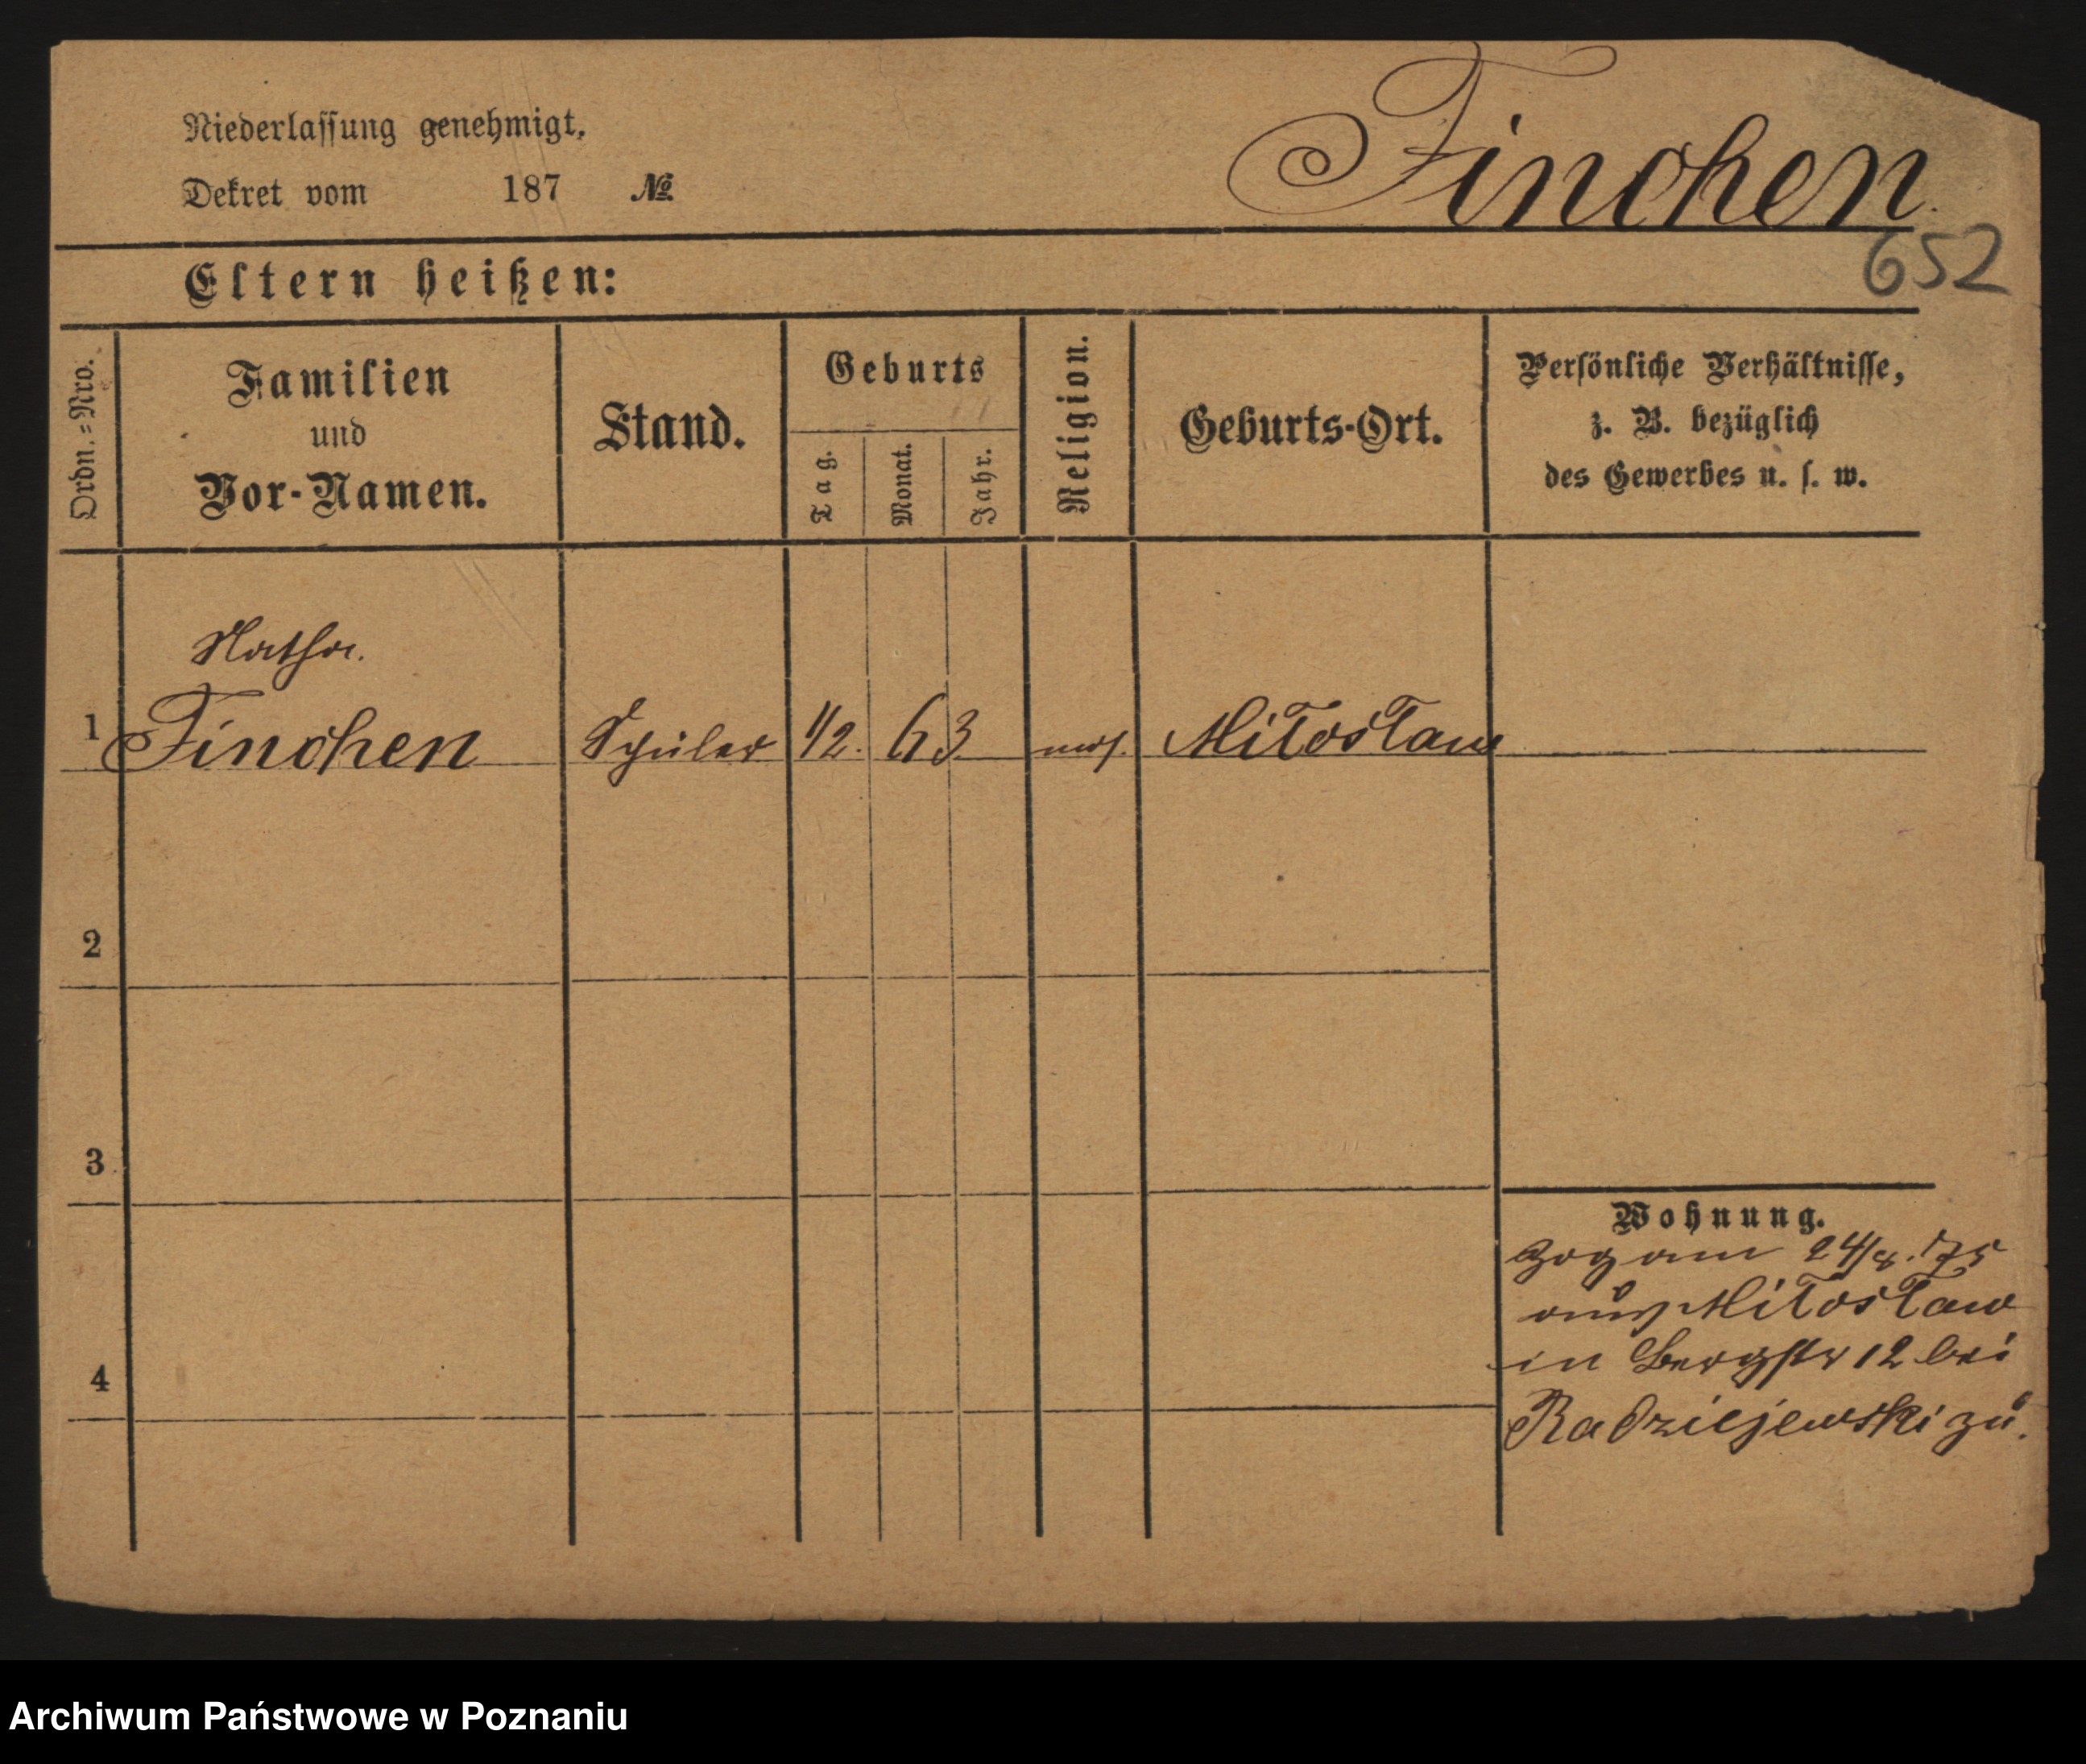 Niederlassung genehmigt.
Dekret vom 187 №
Finchen.
652
Eltern heißen:
Ordn.=Nro.
Familien
und
Vor-Namen.
Stand.
Geburts
Tag.
Monat.
Jahr.
Religion.
Geburts-Ort.
Persönliche Verhältnisse,
z. B. bezüglich
des Gewerbes u. s. w.
Natha.
1 Finchen Schüler 1/2. 63 mos. Miłosław
2
3
4
Wohnung.
Zog am 24/8. 75
aus Miłosław
in Bergstr 12 bei
Radziejewski zu.
Archiwum Państwowe w Poznaniu